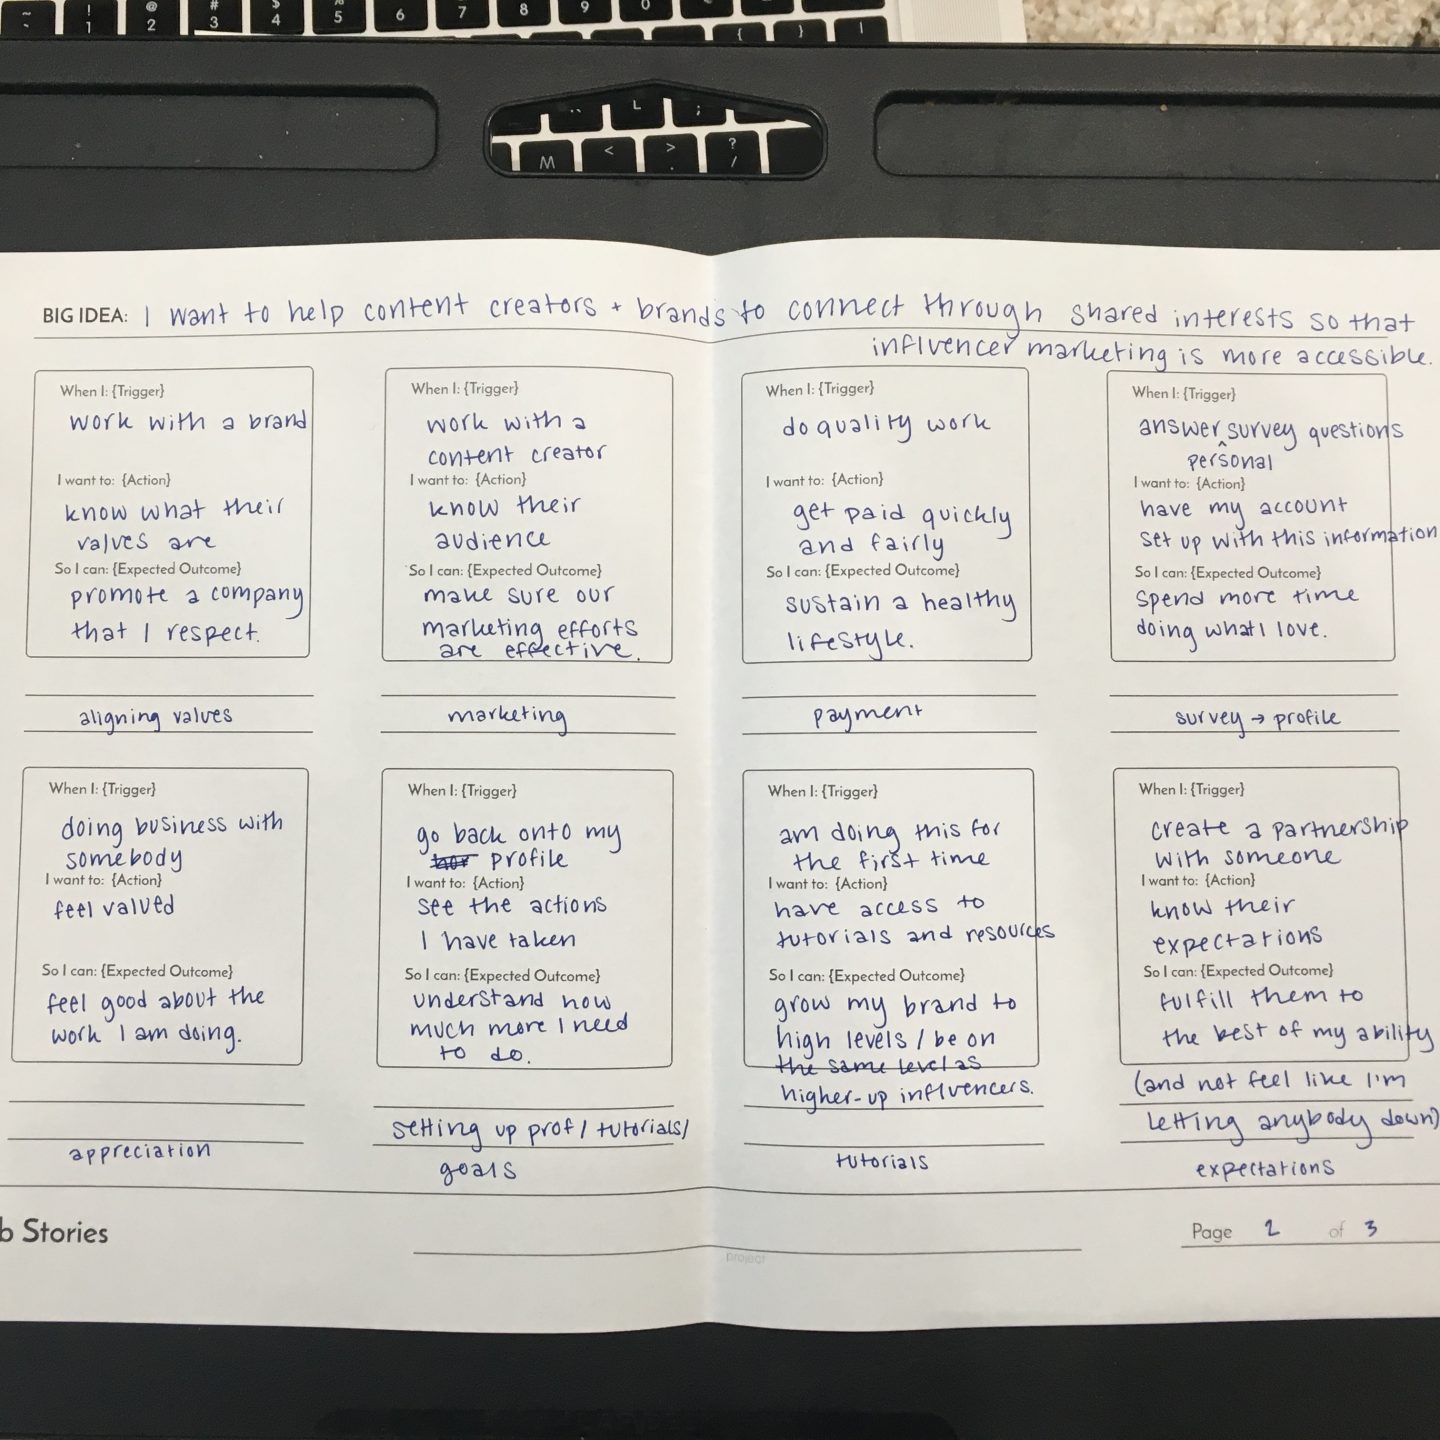 ~ ! @ # $ % 
` 1 2 3 4 5 6 7 8 9 0
{ } |
L ;
M < > ? /
BIG IDEA: I want to help content creators + brands to connect through shared interests so that
influencer marketing is more accessible.
When I: {Trigger}
work with a brand
I want to: {Action}
know what their
values are
So I can: {Expected Outcome}
promote a company
that I respect.
aligning values
When I: {Trigger}
work with a
content creator
I want to: {Action}
know their
audience
So I can: {Expected Outcome}
make sure our
marketing efforts
are effective.
marketing
When I: {Trigger}
do quality work
I want to: {Action}
get paid quickly
and fairly
So I can: {Expected Outcome}
sustain a healthy
lifestyle.
payment
When I: {Trigger}
answer survey questions
personal
I want to: {Action}
have my account
set up with this information
So I can: {Expected Outcome}
spend more time
doing what I love.
survey → profile
When I: {Trigger}
doing business with
somebody
I want to: {Action}
feel valued
So I can: {Expected Outcome}
feel good about the
work I am doing.
appreciation
When I: {Trigger}
go back onto my
profile
I want to: {Action}
see the actions
I have taken
So I can: {Expected Outcome}
understand how
much more I need
to do.
setting up prof / tutorials/
goals
When I: {Trigger}
am doing this for
the first time
I want to: {Action}
have access to
tutorials and resources
So I can: {Expected Outcome}
grow my brand to
high levels / be on
the same level as
higher-up influencers.
tutorials
When I: {Trigger}
create a partnership
with someone
I want to: {Action}
know their
expectations
So I can: {Expected Outcome}
fulfill them to
the best of my ability
(and not feel like I'm
letting anybody down)
expectations
b Stories
project
Page 2 of 3